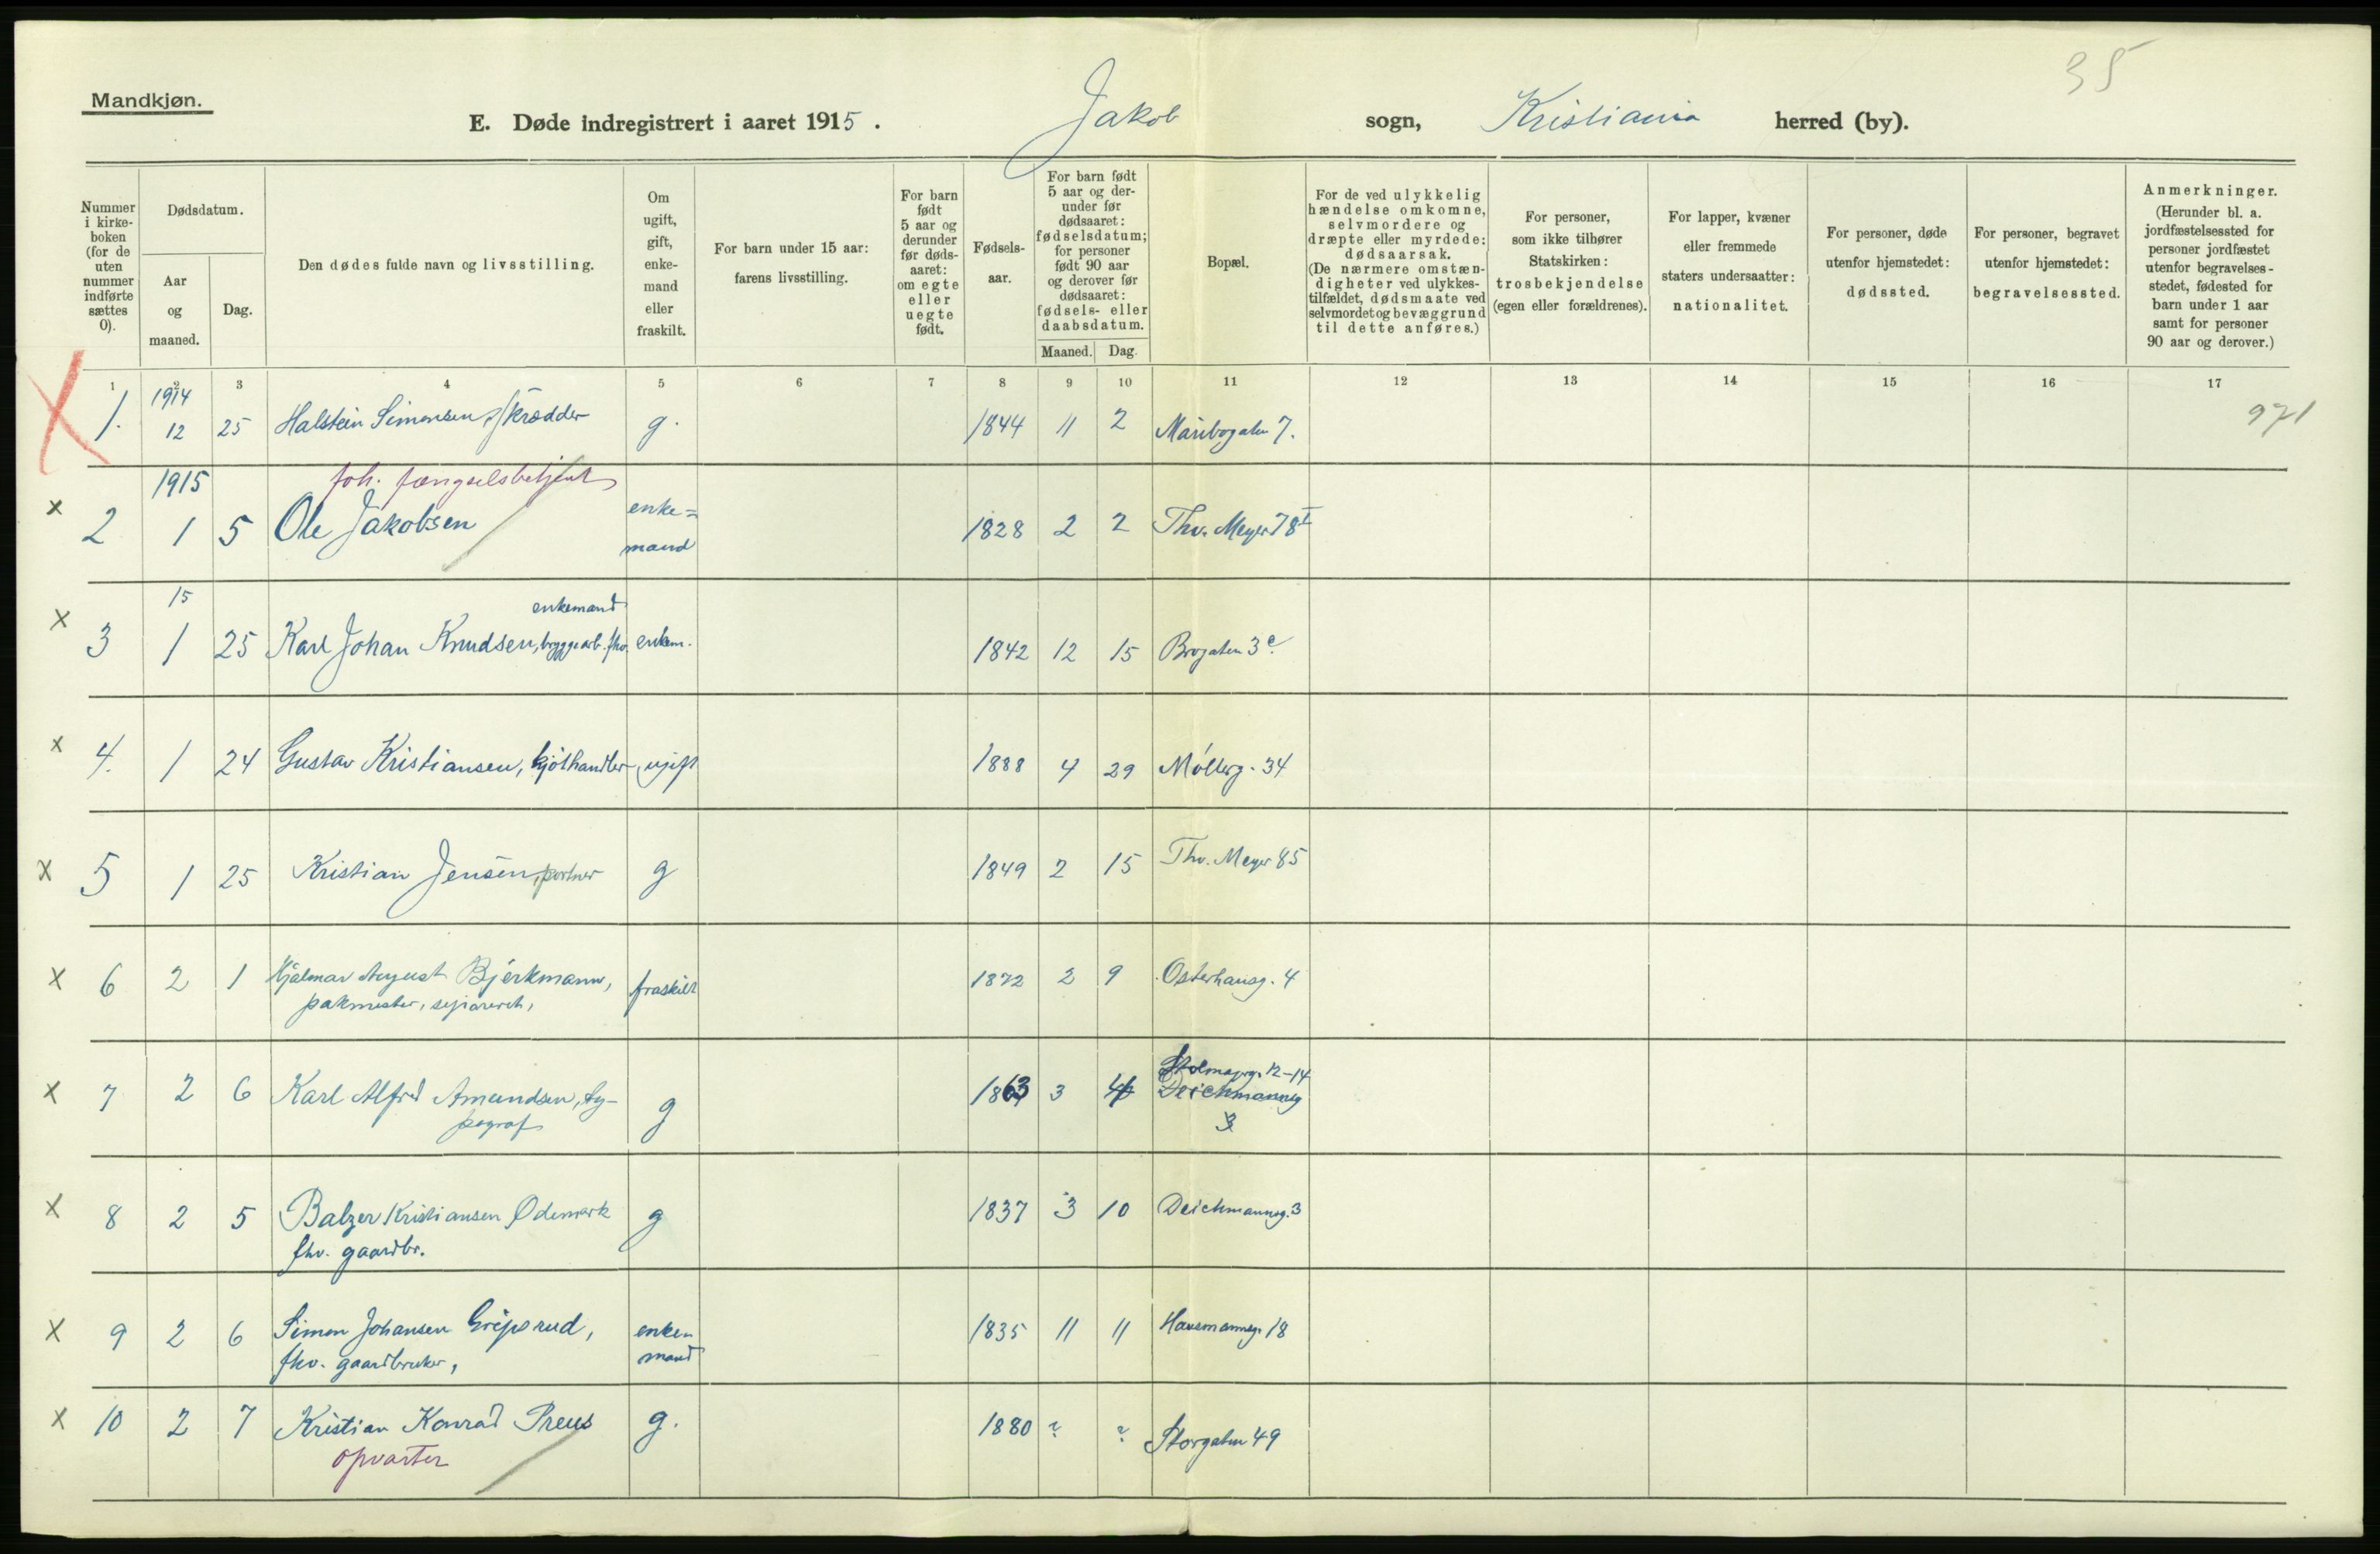 35
Mandkjøn.
E. Døde indregistrert i aaret 1915. Jakob sogn, Kristiania herred (by).
Nummer i kirke-boken (for de uten nummer indførte sættes 0).
Dødsdatum.
Aar og maaned.
Dag.
Den dødes fulde navn og livsstilling.
Om ugift, gift, enke-mand eller fraskilt.
For barn under 15 aar: farens livsstilling.
For barn født 5 aar og derunder før døds-aaret: om egte eller uegte født.
Fødsels-aar.
For barn født 5 aar og der-under før dødsaaret: fødselsdatum; for personer født 90 aar og derover før dødsaaret: fødsels- eller daabsdatum.
Maaned. Dag.
Bopæl.
For de ved ulykkelig hændelse omkomne, selvmordere og dræpte eller myrdede: dødsaarsak. (De nærmere omstæn-digheter ved ulykkes-tilfældet, dødsmaate ved selvmordet og bevæggrund til dette anføres.)
For personer, som ikke tilhører Statskirken: trosbekjendelse (egen eller forældrenes).
For lapper, kvæner eller fremmede staters undersaatter: nationalitet.
For personer, døde utenfor hjemstedet: dødssted.
For personer, begravet utenfor hjemstedet: begravelsessted.
Anmerkninger. (Herunder bl. a. jordfæstelsessted for personer jordfæstet utenfor begravelses-stedet, fødested for barn under 1 aar samt for personer 90 aar og derover.)
1 2 3 4 5 6 7 8 9 10 11 12 13 14 15 16 17
1914
1. 12 25 Halstein Simonsen, Skrædder g. 1844 11 2 Maribogaten 7. 971
1915 fængselsbetjent
x 2 1 5 Ole Jakobsen enke= mand 1828 2 2 Thv. Meyer 78 I
15 enkemand
x 3 1 25 Karl Johan Knudsen, bryggearb. fhv. enkem. 1842 12 15 Brogaten 3 c.
x 4. 1 24 Gustav Kristiansen, kjøthandler ugift 1888 4 29 Møllerg. 34
x 5 1 25 Kristian Jensen, portner g 1849 2 15 Thv. Meyer 85
x 6 2 1 Hjalmar August Bjerkmann, fraskilt 1872 2 9 Osterhausg. 4
pakmester,
x 7 2 6 Karl Alfred Amundsen, ty- g 1863 3 4 12-14
pograf Deichmannsg 3
x 8 2 5 Balzer Kristiansen Ødemark g 1837 3 10 Deichmannsg. 3
fhv. gaardbr.
x 9 2 6 Simon Johansen Gripsrud, enke- 1835 11 11 Hausmannsg. 18
fhv. gaardbruker, mand
x 10 2 7 Kristian Konrad Preus g. 1880 ? ? Storgaten 49
opvarter